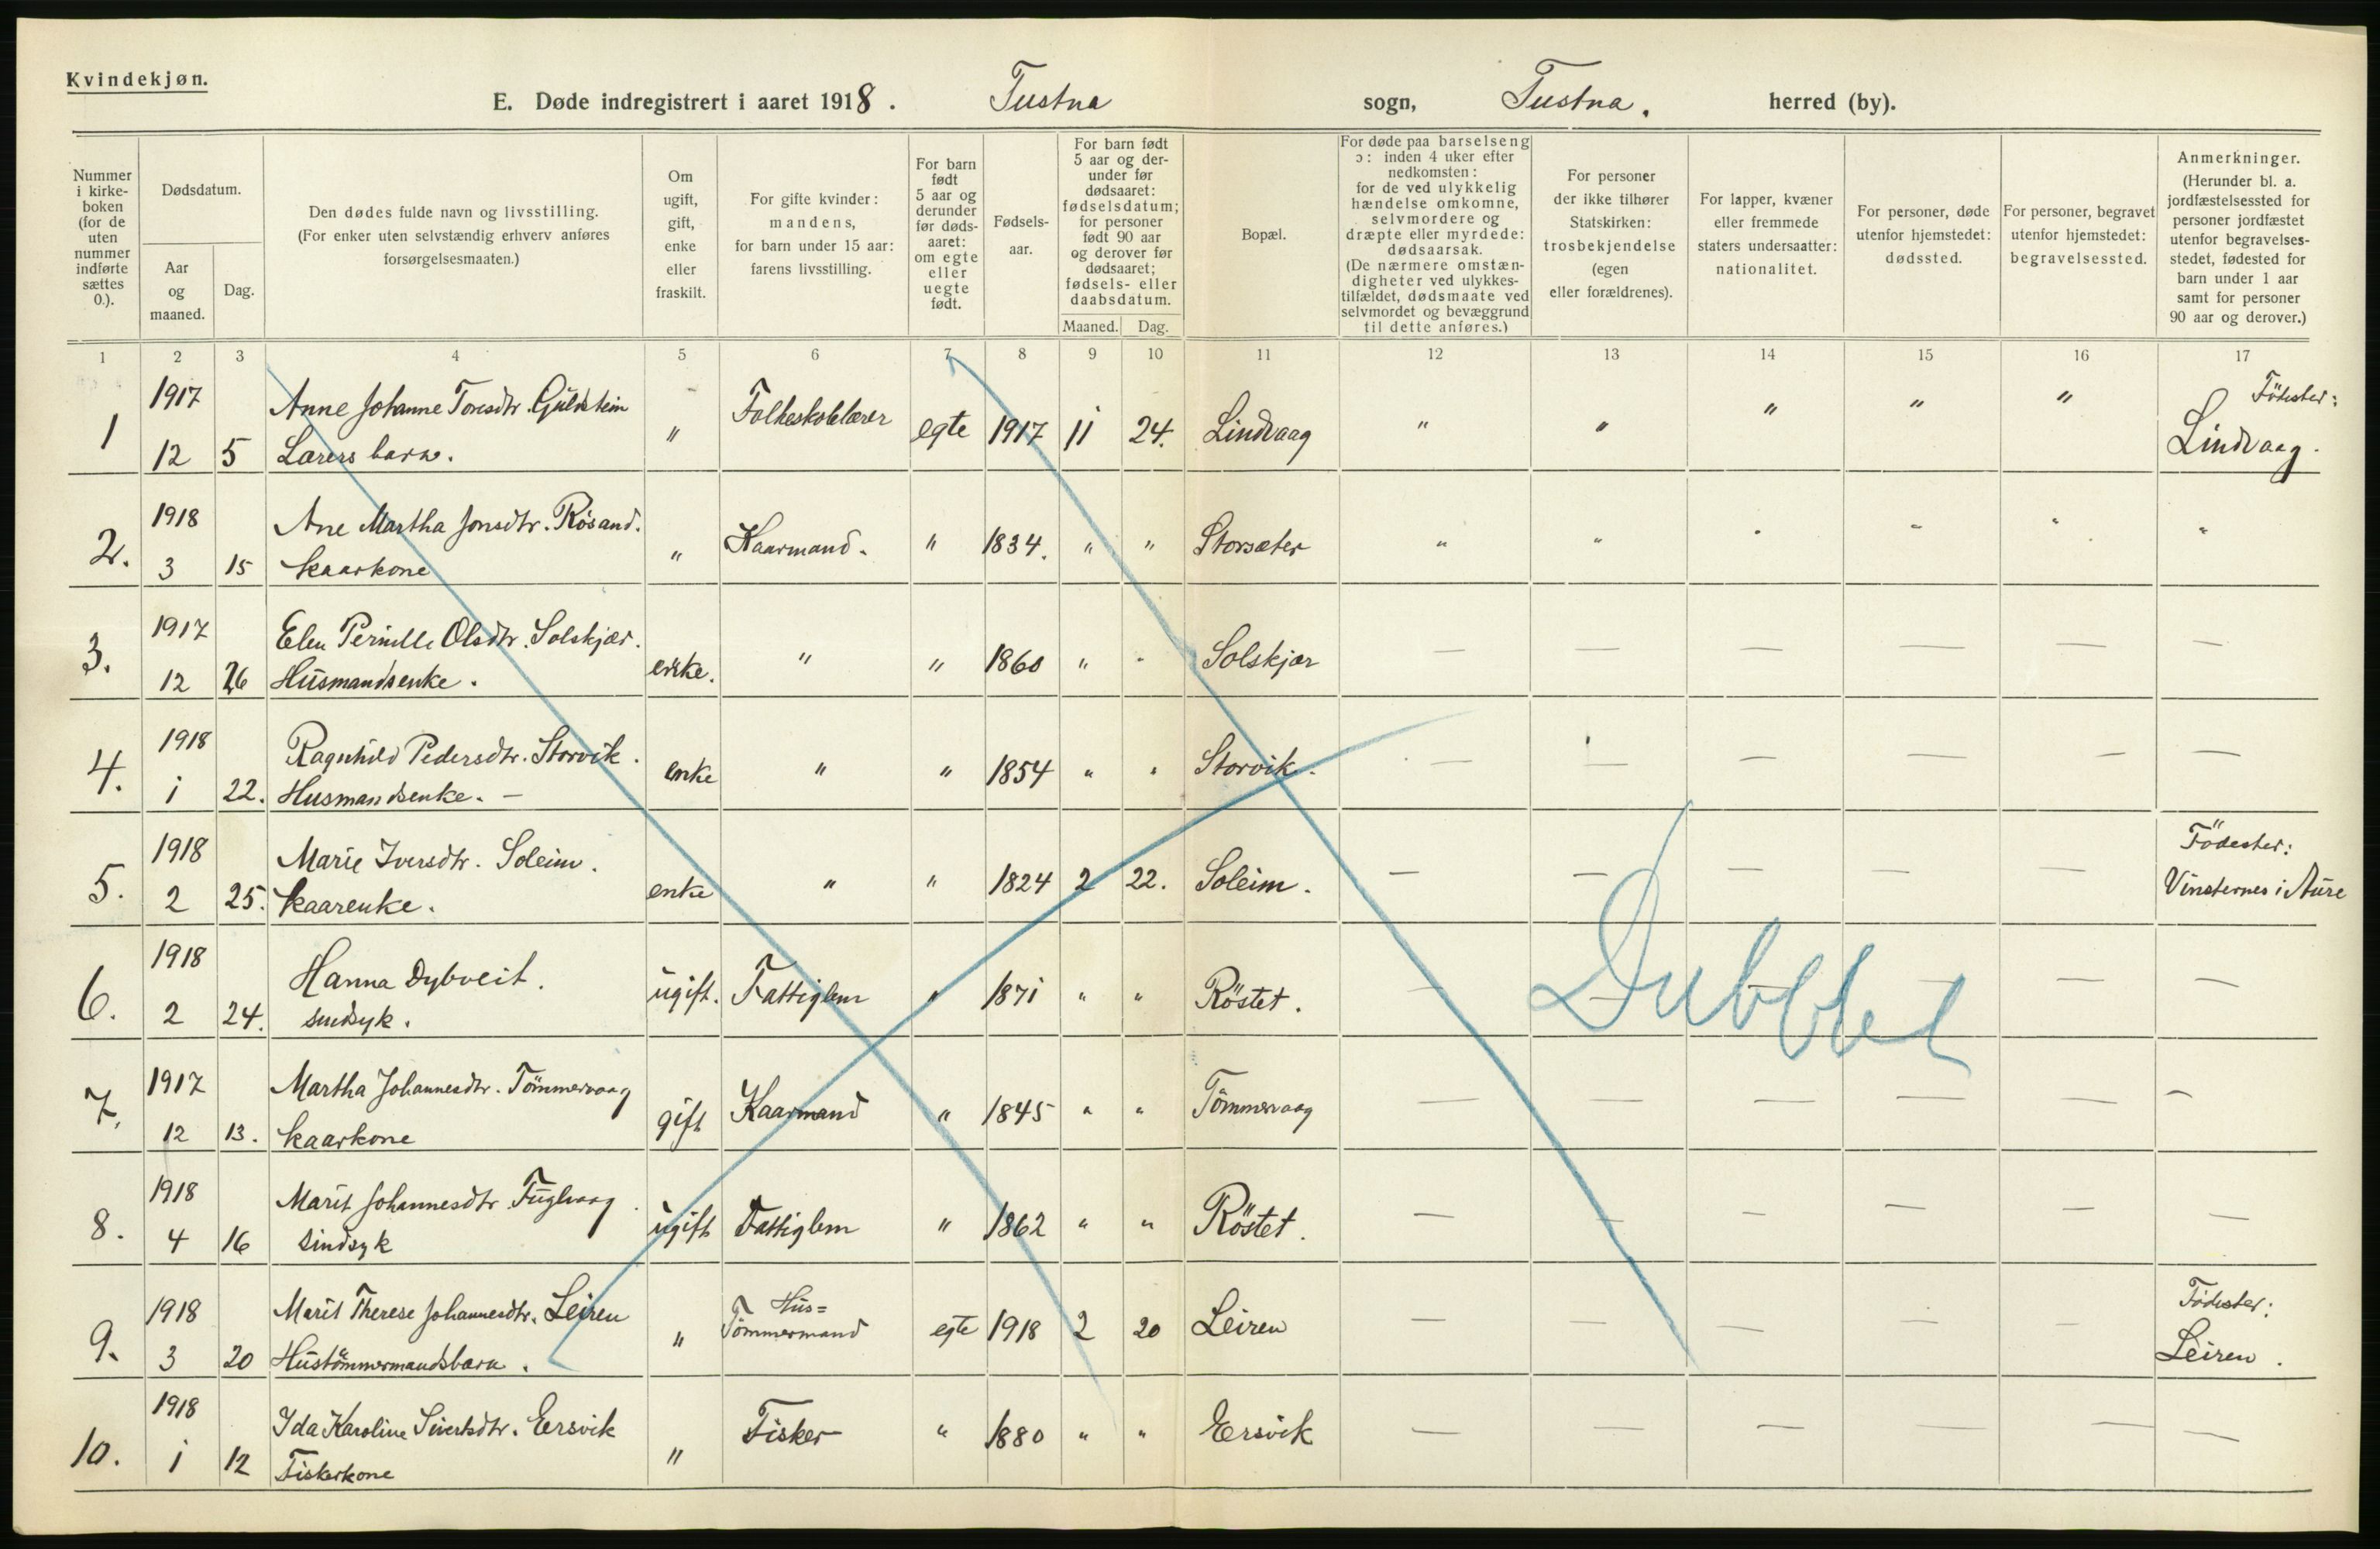 Kvindekjøn.
E. Døde indregistrert i aaret 1918. Tustna sogn, Tustna. herred (by).
Nummer i kirkeboken (for de uten nummer indførte sættes 0.).
Dødsdatum.
Aar og maaned.
Dag.
Den dødes fulde navn og livsstilling. (For enker uten selvstændig erhverv anføres forsørgelsesmaaten.)
Om ugift, gift, enke eller fraskilt.
For gifte kvinder: mandens, for barn under 15 aar: farens livsstilling.
For barn født 5 aar og derunder før dødsaaret: om egte eller uegte født.
Fødselsaar.
For barn født 5 aar og derunder før dødsaaret: fødselsdatum; for personer født 90 aar og derover før dødsaaret; fødsels- eller daabsdatum.
Maaned. Dag.
Bopæl.
For døde paa barselseng ɔ: inden 4 uker efter nedkomsten: for de ved ulykkelig hændelse omkomne, selvmordere og dræpte eller myrdede: dødsaarsak. (De nærmere omstændigheter ved ulykkestilfældet, dødsmaate ved selvmordet og bevæggrund til dette anføres.)
For personer der ikke tilhører Statskirken: trosbekjendelse (egen eller forældrenes).
For lapper, kvæner eller fremmede staters undersaatter: nationalitet.
For personer, døde utenfor hjemstedet: dødssted.
For personer, begravet utenfor hjemstedet: begravelsessted.
Anmerkninger. (Herunder bl. a. jordfæstelsessted for personer jordfæstet utenfor begravelsesstedet, fødested for barn under 1 aar samt for personer 90 aar og derover.)
1 2 3 4 5 6 7 8 9 10 11 12 13 14 15 16 17
1 1917 12 5 Anne Johanne Toresdtr. Guldstein
Lærers barn. " Folkeskolelærer egte 1917 11 24. Lindvaag " " " " " Födester: Lindvaag.
2. 1918 3 15 Ane Martha Jonsdtr. Rösand.
kaarkone " Kaarmand. " 1834. " " Storsæter " " " " " "
3. 1917 12 26 Elen Pernille Olsdtr. Solskjær.
Husmandsenke. enke. " " 1860 " " Solskjær — — — — — —
4. 1918 1 22. Ragnhild Pedersdtr. Storvik.
Husmandsenke. — enke " " 1854 " " Storvik. — — — — — —
5. 1918 2 25. Marie Iversdtr. Soleim.
kaarenke. enke " " 1824 2 22. Soleim. — — — — — Födester: Vinsternes i Aure
6. 1918 2 24. Hanna Dybveit.
sindsyk. ugift. Fattiglem " 1871 " " Röstet. — — — — — —
Dubbel
7. 1917 12 13. Martha Johannesdtr. Tömmervaag
kaarkone gift Kaarmand " 1845 " " Tömmervaag — — — — — —
8. 1918 4 16 Marit Johannesdtr. Fuglvaag.
sindsyk ugift Fattiglem " 1862 " " Röstet. — — — — — —
9. 1918 3 20 Marit Therese Johannesdtr. Leiren
Hustömmermandsbarn. " Hus=Tömmermand egte 1918 2 20 Leiren — — — — — Födester: Leiren.
10. 1918 1 12 Ida Karoline Sivertsdtr. Ersvik
Fiskerkone " Fisker " 1880 " " Ersvik — — — — — —